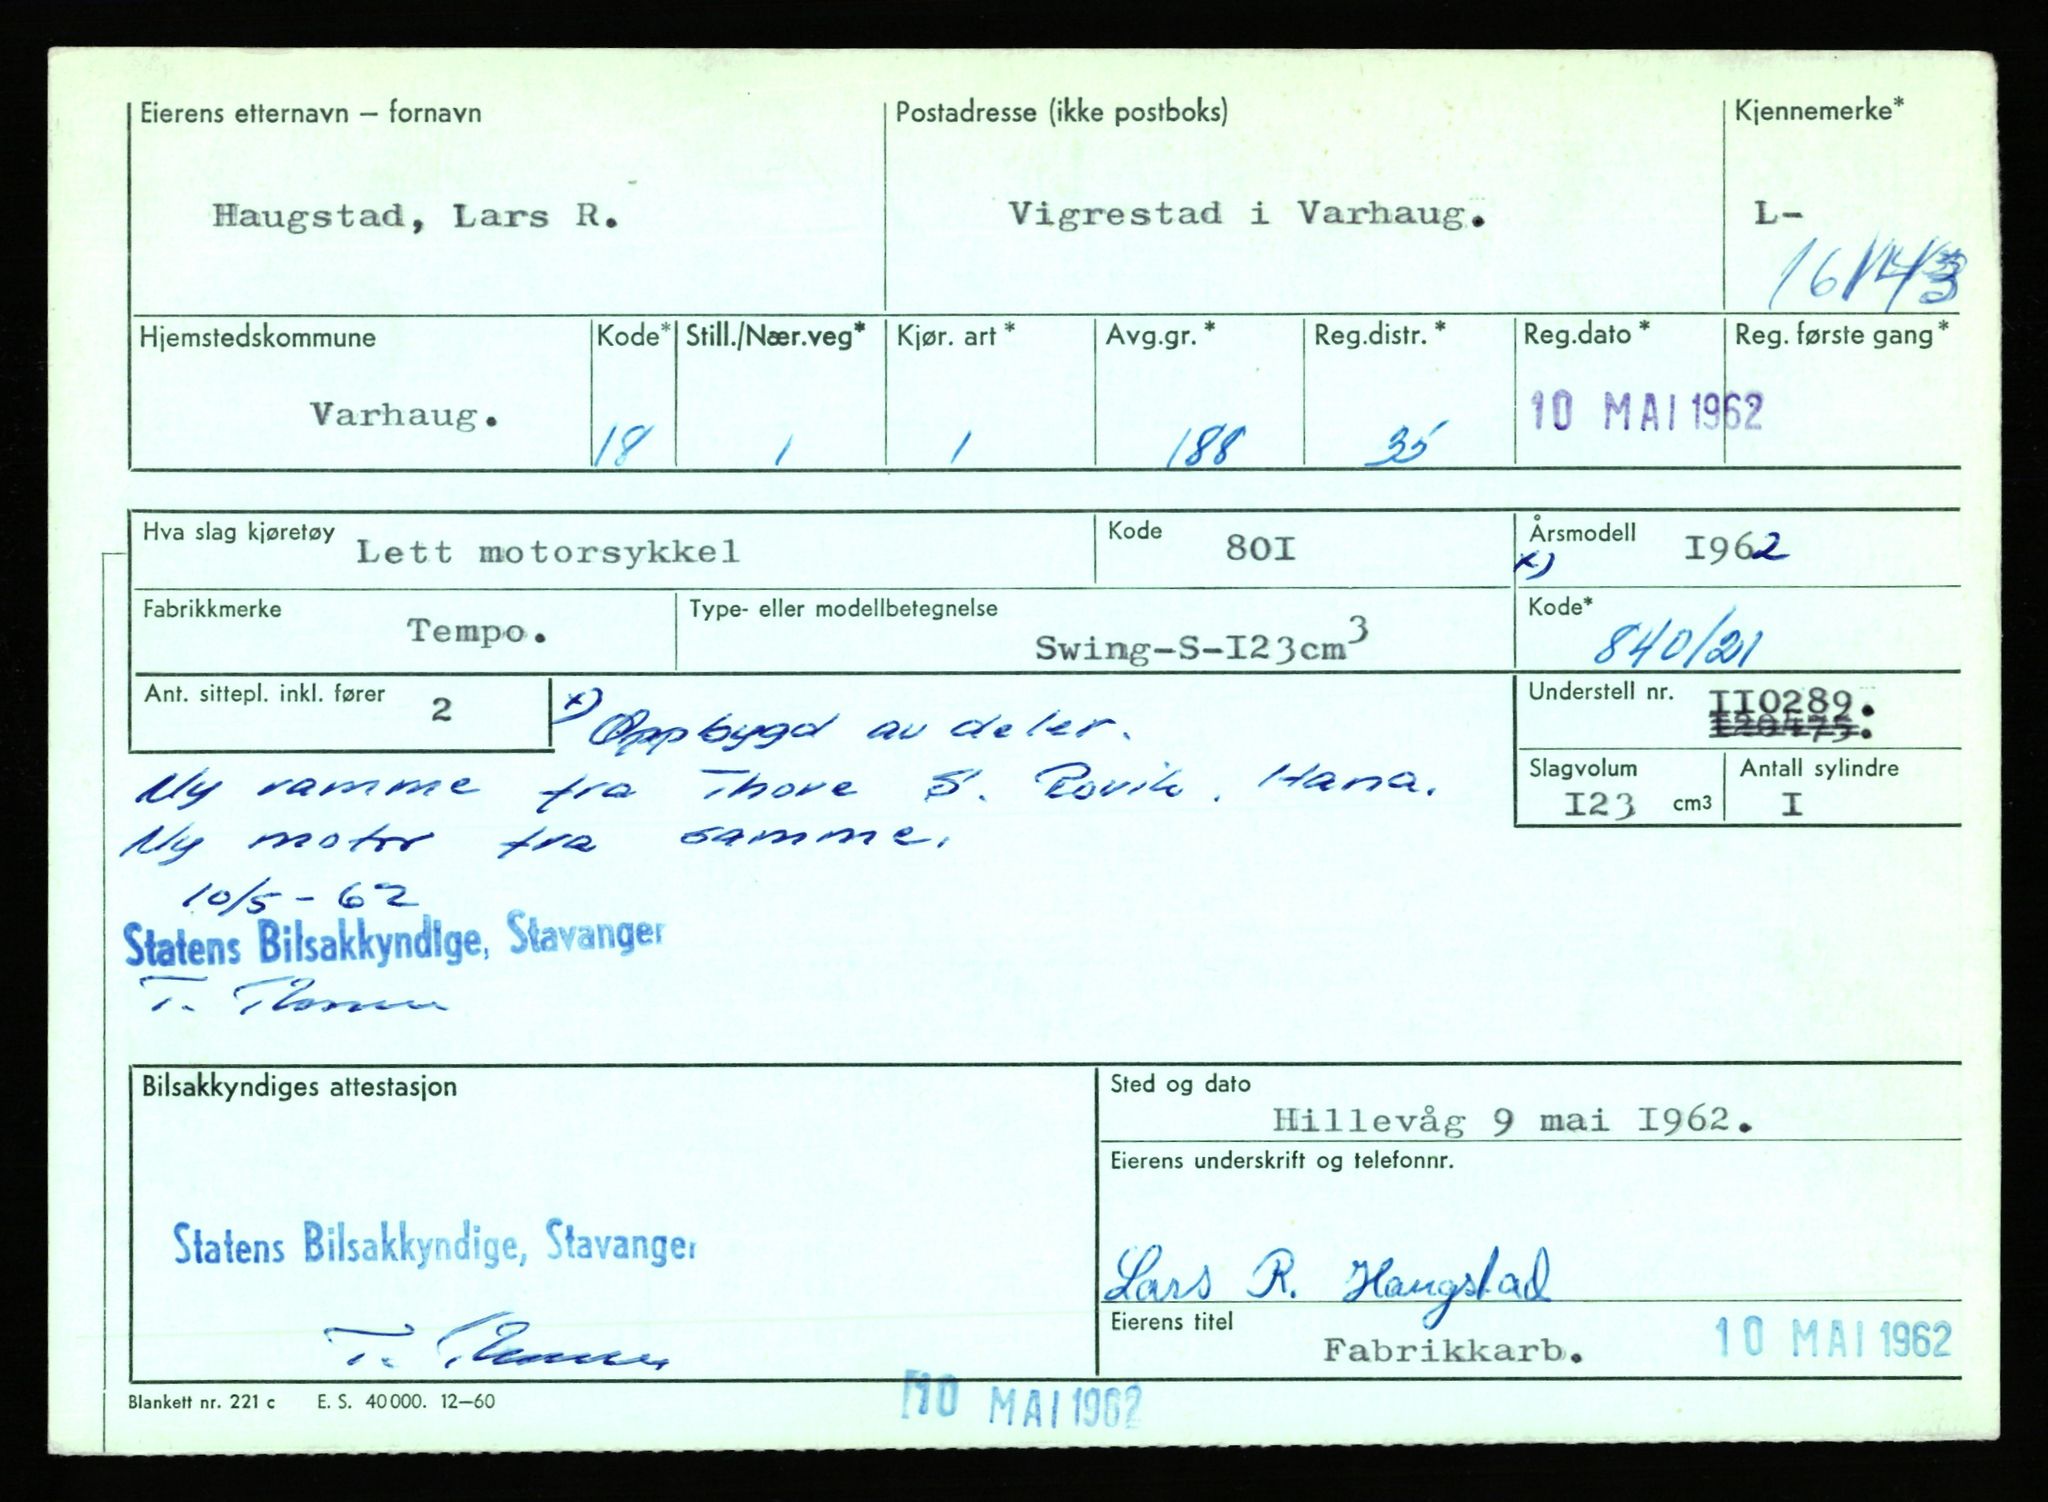 Eierens etternavn – fornavn
Haugstad, Lars R.
Postadresse (ikke postboks)
Vigrestad i Varhaug.
Kjennemerke*
L-
Hjemstedskommune
Varhaug.
Kode*
18
Still./Nær.veg*
1
Kjør. art*
1
Avg.gr.*
188
Reg.distr.*
35
Reg.dato*
10 MAI 1962
Reg. første gang*
Hva slag kjøretøy
Lett motorsykkel
Kode
80I
Årsmodell
x) I962
Fabrikkmerke
Tempo.
Type- eller modellbetegnelse
Swing-S-I23cm3
Kode*
840/21
Ant. sittepl. inkl. fører
2
Understell nr.
II0289.
Slagvolum
I23 cm3
Antall sylindre
I
x) Oppbygd av deler.
Ny ramme fra Thore S. Rovik. Hana.
Ny motor fra samme.
10/5-62
Statens Bilsakkyndige, Stavanger
T.
Bilsakkyndiges attestasjon
Statens Bilsakkyndige, Stavanger
T.
Sted og dato
Hillevåg 9 mai I962.
Eierens underskrift og telefonnr.
Lars R. Haugstad
Eierens titel
Fabrikkarb.
10 MAI 1962
Blankett nr. 221 c E. S. 40 000. 12–60
10 MAI 1962